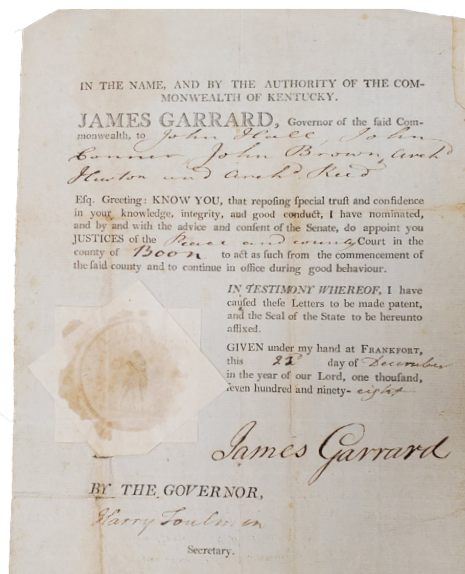 IN THE NAME, AND BY THE AUTHORITY OF THE COM-
MONWEALTH OF KENTUCKY.
JAMES GARRARD, Governor of the said Com-
monwealth, to John Hall, John
Conner, John Brown, Archd
Huston and Archd Reed
Esq. Greeting: KNOW YOU, that reposing special trust and confidence
in your knowledge, integrity, and good conduct, I have nominated,
and by and with the advice and consent of the Senate, do appoint you
JUSTICES of the Peace and county Court in the
county of Boon to act as such from the commencement of
the said county and to continue in office during good behaviour.
IN TESTIMONY WHEREOF, I have
caused these Letters to be made patent,
and the Seal of the State to be hereunto
affixed.
GIVEN under my hand at FRANKFORT,
this 22d day of December
in the year of our Lord, one thousand,
seven hundred and ninety- eight
James Garrard
BY THE GOVERNOR,
Harry Toulmin
Secretary.